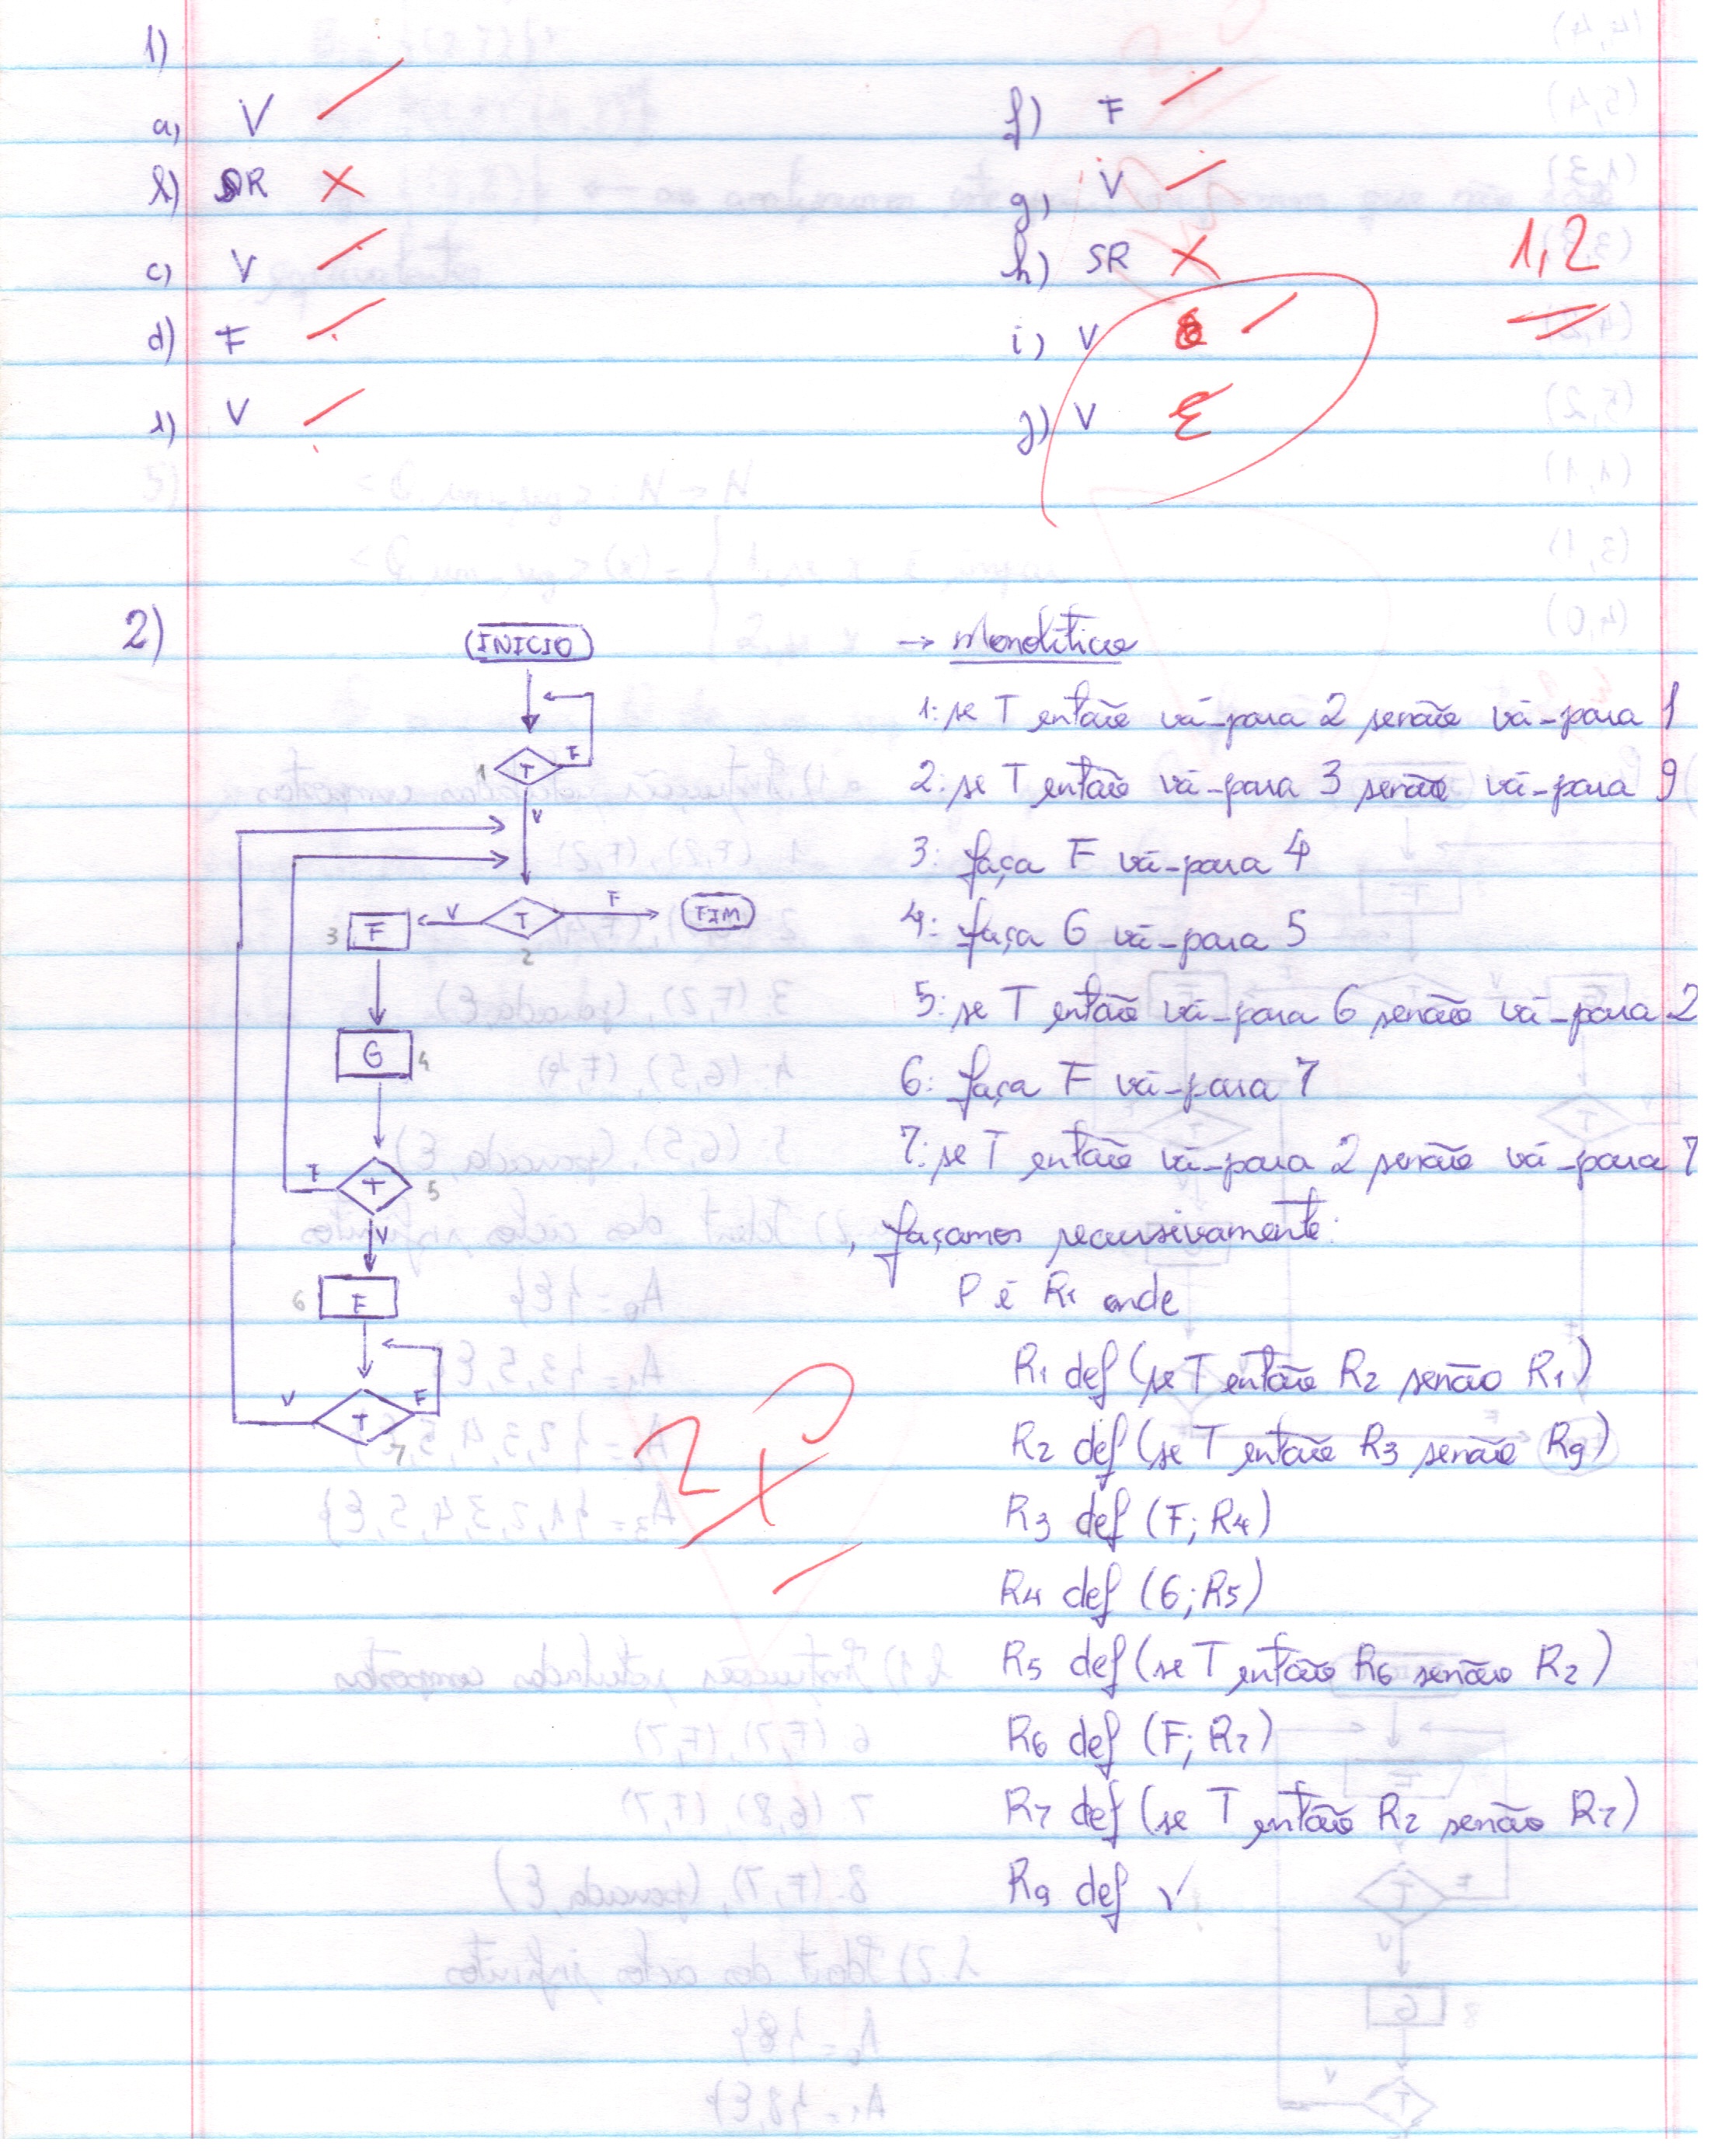 1)
a) V
b) SR
c) V
d) F
e) V
f) F
g) V
h) SR
i) V
j) V
1,2
2)
INICIO
1 T F
V
3 F V T F FIM
2
G 4
F T 5
V
6 F
V T F
7
→ Monolítico
1: se T então vá-para 2 senão vá-para 1
2: se T então vá-para 3 senão vá-para 9
3: faça F vá-para 4
4: faça G vá-para 5
5: se T então vá-para 6 senão vá-para 2
6: faça F vá-para 7
7: se T então vá-para 2 senão vá-para 7
, façamos recursivamente:
P é R1 onde
R1 def (se T então R2 senão R1)
R2 def (se T então R3 senão R9)
R3 def (F; R4)
R4 def (G; R5)
R5 def (se T então R6 senão R2)
R6 def (F; R7)
R7 def (se T então R2 senão R7)
R9 def √